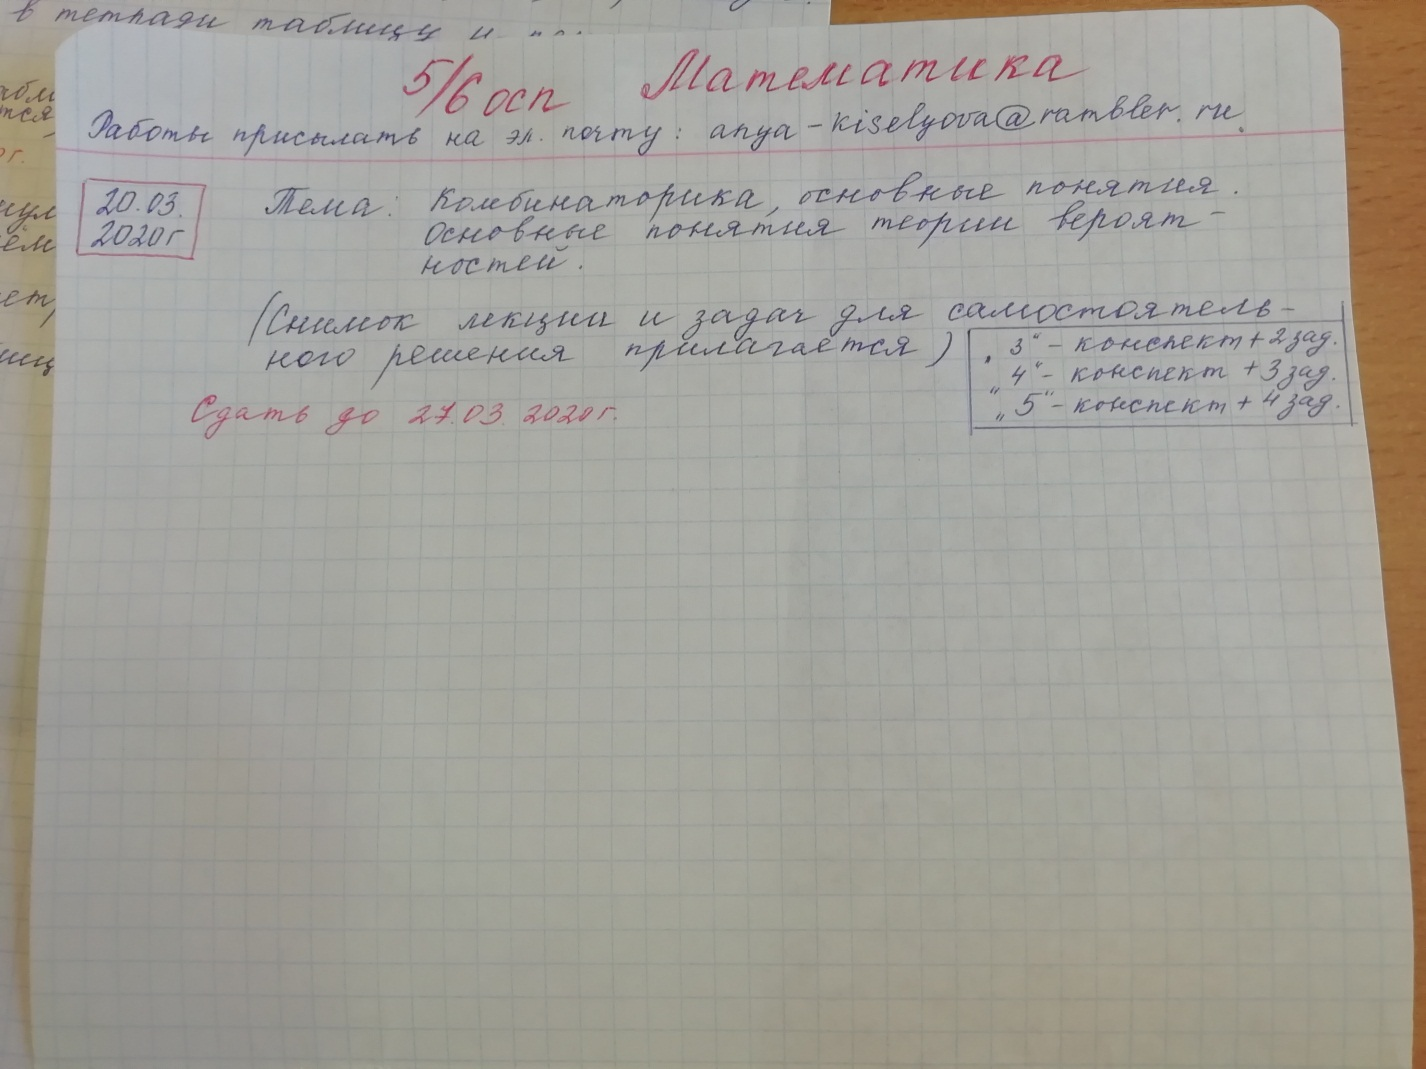 в тетради таблицу и
5/6 осп Математика
Работы присылать на эл. почту: anya-kiselyova@rambler.ru.
20.03.
2020г
Тема: Комбинаторика, основные понятия.
Основные понятия теории вероят-
ностей.
(Снимок лекции и задач для самостоятель-
ного решения прилагается)
„3“ - конспект + 2 зад.
„4“ - конспект + 3 зад.
„5“ - конспект + 4 зад.
Сдать до 27.03.2020г.